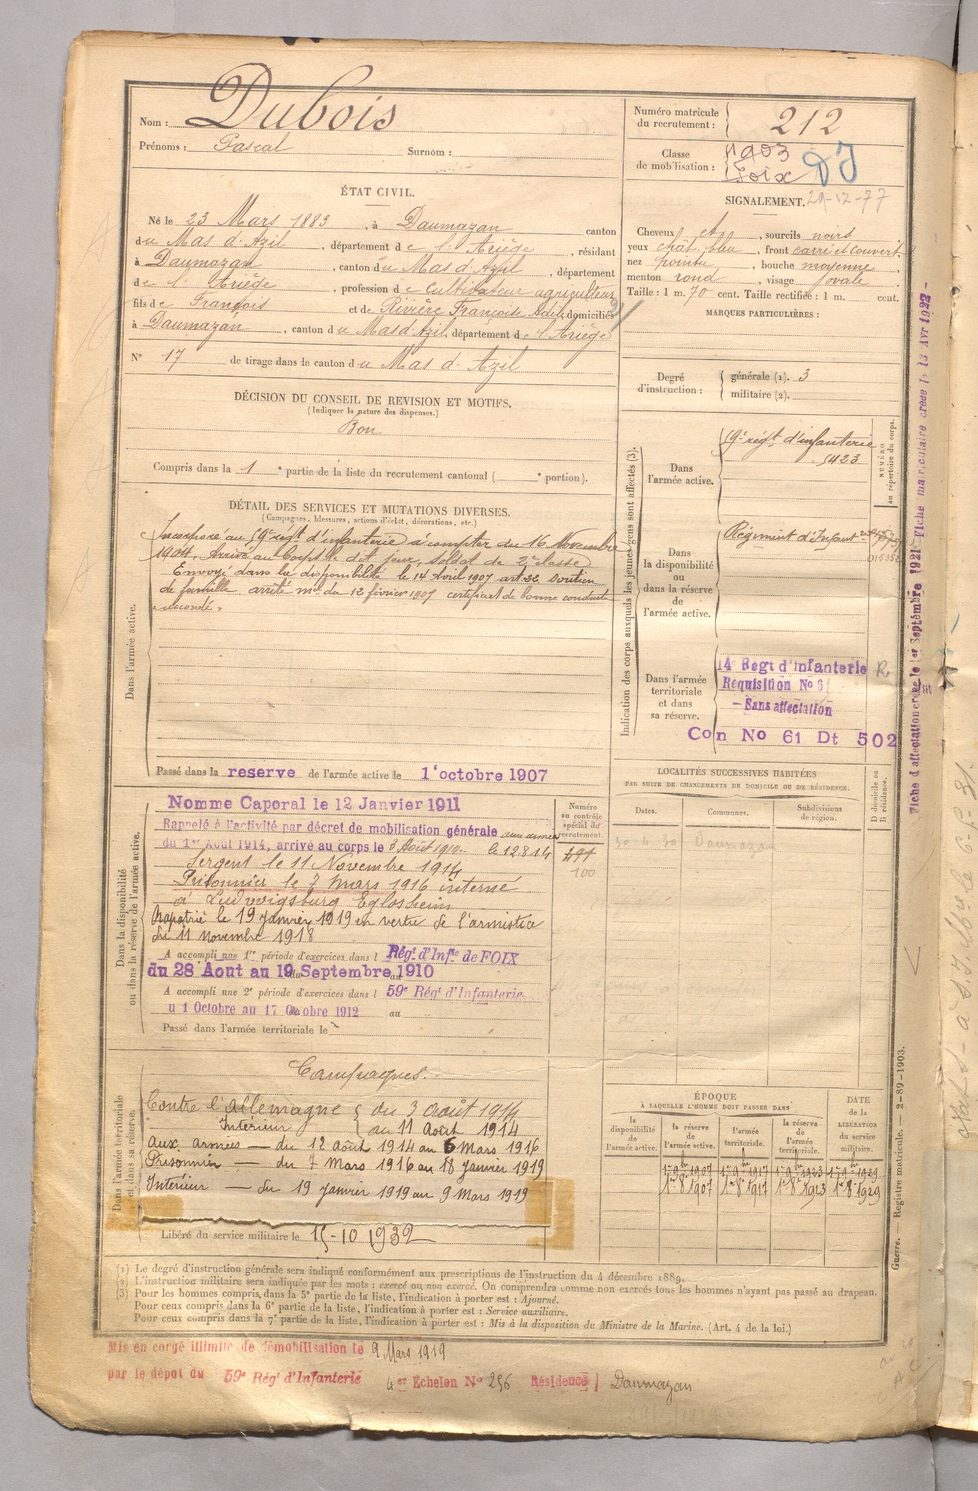 Nom : Dubois
Prénoms : Pascal Surnom :
ÉTAT CIVIL.
Né le 23 Mars 1883, à Daumazan canton
du Mas d'Azil, département de l'Ariège, résidant
à Daumazan, canton du Mas d'Azil, département
de l'Ariège, profession de cultivateur agriculteur
fils de François et de Rivière Françoise domiciliés
à Daumazan, canton du Mas d'Azil, département de l'Ariège
N° 17 de tirage dans le canton du Mas d'Azil
DÉCISION DU CONSEIL DE REVISION ET MOTIFS.
(Indiquer la nature des dispenses.)
Bon
Compris dans la 1e partie de la liste du recrutement cantonal ( e portion).
DÉTAIL DES SERVICES ET MUTATIONS DIVERSES.
(Campagnes, blessures, actions d'éclat, décorations, etc.)
Dans l'armée active.
Incorporé au 59e régt d'infanterie à compter du 16 Novembre
1904. Arrivé au corps le dit jour, soldat de 2e classe
Envoyé dans la disponibilité le 14 Août 1907 art 22 soutien
de famille arrêté mel du 12 février 1907 certificat de bonne conduite
accordé.
Passé dans la reserve de l'armée active le 1er octobre 1907
Dans la disponibilité
ou dans la réserve de l'armée active.
Nomme Caporal le 12 Janvier 1911
Rappelé à l'activité par décret de mobilisation générale aux armées
du 1er Août 1914, arrivé au corps le 3 Août 1914. le 12.8.14
Sergent le 11 Novembre 1914
Prisonnier le 7 mars 1916 interné
à Ludwigsburg Eglosheim
Rapatrié le 19 janvier 1919 en vertu de l'armistice
du 11 novembre 1918
A accompli une 1re période d'exercices dans l Régt d'Infie de FOIX
du 28 Aout au 19 Septembre 1910
A accompli une 2e période d'exercices dans l 59e Régt d'Infanterie
u 1 Octobre au 17 Octobre 1912 au
Passé dans l'armée territoriale le
Numéro
au contrôle
spécial du
recrutement.
100
Dans l'armée territoriale
et dans sa réserve.
Campagnes.
Contre l'Allemagne { du 3 août 1914
Intérieur { au 11 Août 1914
Aux armées — du 12 août 1914 au 6 Mars 1916
Prisonnier — du 7 Mars 1916 au 18 janvier 1919
Intérieur — du 19 janvier 1919 au 9 Mars 1919
Libéré du service militaire le 15-10 1932
Numéro matricule
du recrutement : 212
Classe
de mobilisation : 1903
Foix
DJ
SIGNALEMENT. 29-12-77
Cheveux et, sourcils noirs
yeux chât. bleu, front carré et couvert,
nez pointu, bouche moyenne,
menton rond, visage ovale
Taille : 1 m. 70 cent. Taille rectifiée : 1 m. cent.
MARQUES PARTICULIÈRES :
Degré
d'instruction :
générale (1). 3
militaire (2).
Indication des corps auxquels les jeunes gens sont affectés (3).
NUMÉRO
au répertoire du corps.
Dans
l'armée active.
59e régt d'infanterie
5423
Dans
la disponibilité
ou
dans la réserve
de
l'armée active.
Régiment d'Infant
Dans l'armée
territoriale
et dans
sa réserve.
14e Regt d'infanterie R
Requisition No 6
— Sans affectation
Con No 61 Dt 502
LOCALITÉS SUCCESSIVES HABITÉES
PAR SUITE DE CHANGEMENTS DE DOMICILE OU DE RÉSIDENCE.
Dates. Communes. Subdivisions
de région. D domicile ou
R résidence.
30-4-30 Daumazan
ÉPOQUE
À LAQUELLE L'HOMME DOIT PASSER DANS
la
disponibilité
de
l'armée active.
la réserve
de
l'armée active.
l'armée
territoriale.
la réserve
de
l'armée
territoriale.
DATE
de la
LIBÉRATION
du service
militaire.
1er 9bre 1907 1er 9bre 1917 1er 9bre 1923 1er 9bre 1929
1er 8bre 1907 1er 8bre 1917 1er 8bre 1923 1er 8bre 1929
Fiche d'affectation créée le 1er Septembre 1921 Fiche matriculaire creée le 13 Avr 1923 -
Guerre. — Registre matricule. — 2-89-1903.
(1) Le degré d'instruction générale sera indiqué conformément aux prescriptions de l'instruction du 4 décembre 1889.
(2) L'instruction militaire sera indiquée par les mots : exercé ou non exercé. On comprendra comme non exercés tous les hommes n'ayant pas passé au drapeau.
(3) Pour les hommes compris, dans la 5e partie de la liste, l'indication à porter est : Ajourné.
Pour ceux compris dans la 6e partie de la liste, l'indication à porter est : Service auxiliaire.
Pour ceux compris dans la 7e partie de la liste, l'indication à porter est : Mis à la disposition du Ministre de la Marine. (Art. 4 de la loi.)
Mis en congé illimité de démobilisation le 9 Mars 1919
par le dépot du 59e Régt d'Infanterie 4er Echelon No 256 Résidence } Daumazan